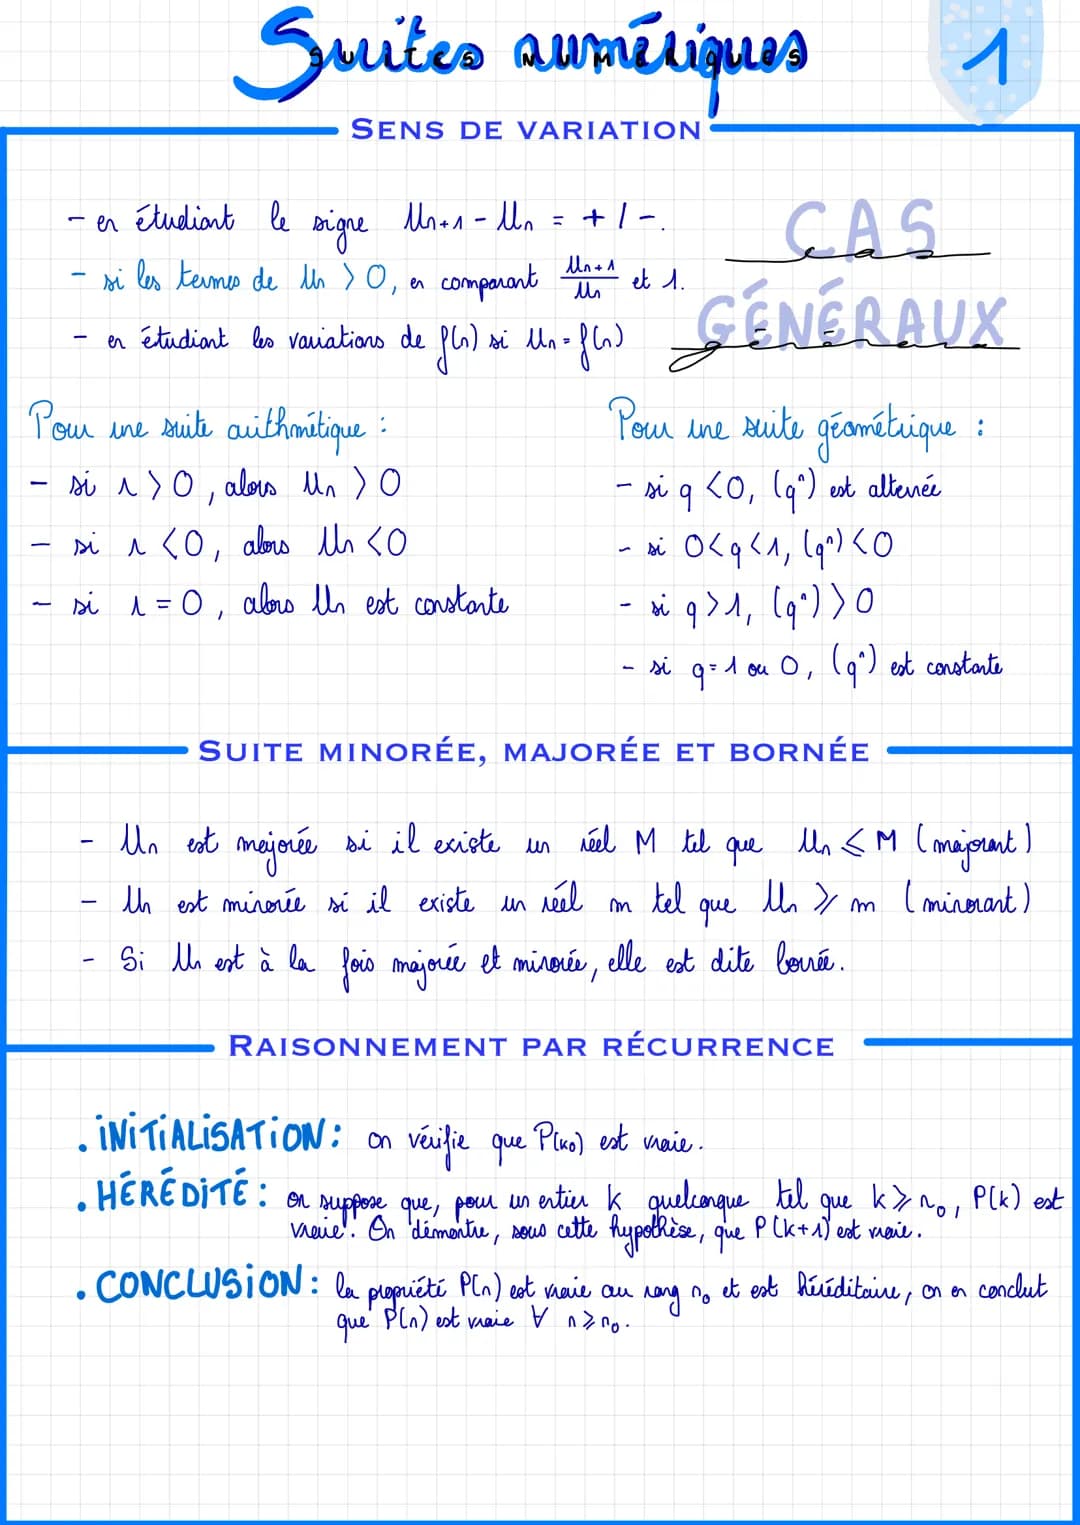 Suites numériques
SUITES NUMÉRIQUES
1
SENS DE VARIATION
- en étudiant le signe Un+1 - Un = + / -.
- si les termes de Un > 0, en comparant Un+1/Un et 1.
- en étudiant les variations de f(n) si Un = f(n)
CAS
cas
GÉNÉRAUX
généraux
Pour une suite arithmétique :
- si r > 0, alors Un > 0
- si r < 0, alors Un < 0
- si r = 0, alors Un est constante
Pour une suite géométrique :
- si q < 0, (qⁿ) est alternée
- si 0 < q < 1, (qⁿ) < 0
- si q > 1, (qⁿ) > 0
- si q = 1 ou 0, (qⁿ) est constante
SUITE MINORÉE, MAJORÉE ET BORNÉE
- Un est majorée si il existe un réel M tel que Un ⩽ M (majorant)
- Un est minorée si il existe un réel m tel que Un ⩾ m (minorant)
- Si Un est à la fois majorée et minorée, elle est dite bornée.
RAISONNEMENT PAR RÉCURRENCE
. INITIALISATION : on vérifie que P(n₀) est vraie.
. HÉRÉDITÉ : on suppose que, pour un entier k quelconque tel que k ⩾ n₀, P(k) est
vraie. On démontre, sous cette hypothèse, que P(k+1) est vraie.
. CONCLUSION : la propriété P(n) est vraie au rang n₀ et est héréditaire, on en conclut
que P(n) est vraie ∀ n ⩾ n₀.